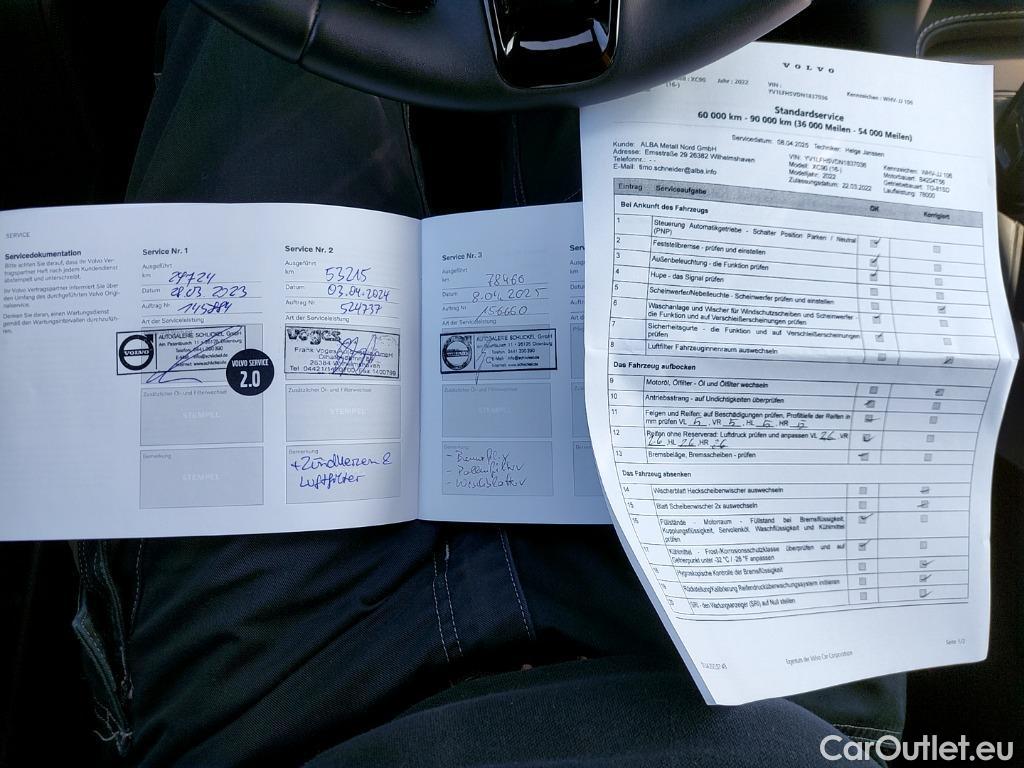 SERVICE
Servicedokumentation
Bitte achten Sie darauf, dass Ihr Volvo Ver-
tragspartner Heft nach jedem Kundendienst
abstempelt und unterschreibt.
Ihr Volvo Vertragspartner informiert Sie über
den Umfang des durchgeführten Volvo Origi-
nalservice.
Denken Sie daran, einen Wartungsdienst
gemäß den Wartungsintervallen durchzufüh-
ren.
Service Nr. 1
Ausgeführt
km 29724
Datum 28.03.2023
Auftrag Nr
Art der Serviceleistung
VOLVO
AUTOGALERIE SCHLICKEL GmbH
VOLVO SERVICE
2.0
Zusätzlicher Öl- und Filterwechsel
STEMPEL
Bemerkung
STEMPEL
Service Nr. 2
Ausgeführt
km 53215
Datum 03.04.2024
Auftrag Nr 524737
Art der Serviceleistung
voges
26384 Wilhelmshaven
Zusätzlicher Öl- und Filterwechsel
STEMPEL
Bemerkung
+Zündkerzen &
Luftfilter
Service Nr. 3
Ausgeführt
km 78460
Datum 8.04.2025
Auftrag Nr 156660
Art der Serviceleistung
VOLVO
AUTOGALERIE SCHLICKEL GmbH
Zusätzlicher Öl- und Filterwechsel
STEMPEL
Bemerkung
- Pollenfilter
- Wischblätter
VOLVO
XC90 Jahr : 2022 VIN : Kennzeichen : WHV-JJ 106
(16-) YV1LFHSVDN1837036
Standardservice
60 000 km - 90 000 km (36 000 Meilen - 54 000 Meilen)
Servicedatum: 08.04.2025 Techniker: Helge Janssen
Kunde: ALBA Metall Nord GmbH VIN: YV1LFHSVDN1837036 Kennzeichen: WHV-JJ 106
Adresse: Emsstraße 29 26382 Wilhelmshaven Modell: XC90 (16-) Motorbauart: B4204T56
Telefonnr.: - - Modelljahr: 2022 Getriebebauart: TG-81SD
E-Mail: timo.schneider@alba.info Zulassungsdatum: 22.03.2022 Laufleistung: 78000
Eintrag Serviceaufgabe OK Korrigiert
Bei Ankunft des Fahrzeugs
1 Steuerung Automatikgetriebe - Schalter Position Parken / Neutral
(PNP)
2 Feststellbremse - prüfen und einstellen
3 Außenbeleuchtung - die Funktion prüfen
4 Hupe - das Signal prüfen
5 Scheinwerfer/Nebelleuchte - Scheinwerfer prüfen und einstellen
6 Waschanlage und Wischer für Windschutzscheiben und Scheinwerfer -
die Funktion und auf Verschleißerscheinungen prüfen
7 Sicherheitsgurte - die Funktion und auf Verschleißerscheinungen
prüfen
8 Luftfilter Fahrzeuginnenraum auswechseln
Das Fahrzeug aufbocken
9 Motoröl, Ölfilter - Öl und Ölfilter wechseln
10 Antriebsstrang - auf Undichtigkeiten überprüfen
11 Felgen und Reifen: auf Beschädigungen prüfen, Profiltiefe der Reifen in
mm prüfen VL 5 , VR 5 , HL 5 , HR 5
12 Reifen ohne Reserverad: Luftdruck prüfen und anpassen VL 2.6 , VR
2.6 , HL 2.6 , HR 2.6
13 Bremsbeläge, Bremsscheiben - prüfen
Das Fahrzeug absenken
14 Wischerblatt Heckscheibenwischer auswechseln
15 Blatt Scheibenwischer 2x auswechseln
16 Füllstände - Motorraum - Füllstand bei Bremsflüssigkeit,
Kupplungsflüssigkeit, Servolenköl, Waschflüssigkeit und Kühlmittel
prüfen
17 Kühlmittel - Frost-/Korrosionsschutzklasse überprüfen und auf
Gefrierpunkt unter -32 °C / -26 °F anpassen
18 Hygroskopische Kontrolle der Bremsflüssigkeit
19 Rückstellung/Kalibrierung Reifendrucküberwachungssystem initiieren
20 SRI - den Wartungsanzeiger (SRI) auf Null stellen
Eigentum der Volvo Car Corporation
Seite 1/2
CarOutlet.eu